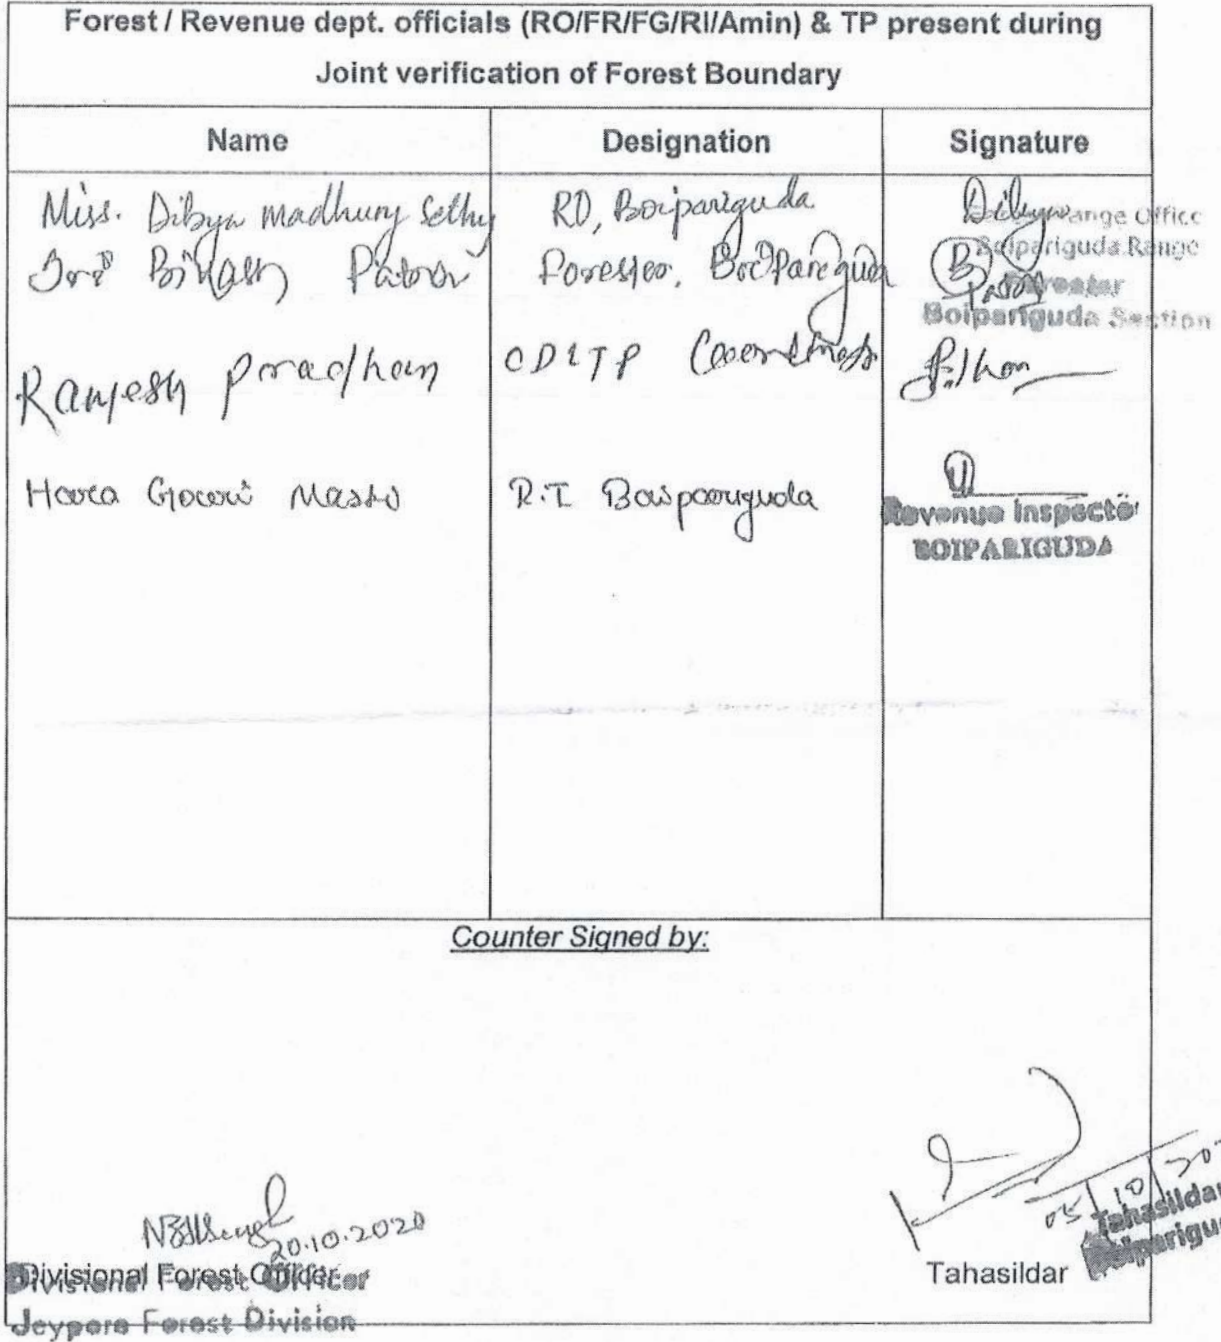 Forest / Revenue dept. officials (RO/FR/FG/RI/Amin) & TP present during
Joint verification of Forest Boundary
Name Designation Signature
Miss. Dibya madhury Sethy RO, Boipariguda Dibya
Range Office
Boipariguda Range
Forester, Boipariguda
Forester
Boipariguda Section
Ramesh Pradhan
Hara Gouri R.I Boipariguda
Revenue Inspector
BOIPARIGUDA
Counter Signed by:
20.10.2020
05 10
Divisional Forest Officer Tahasildar
Divisional Forest Officer
Jeypore Forest Division
Tahasildar